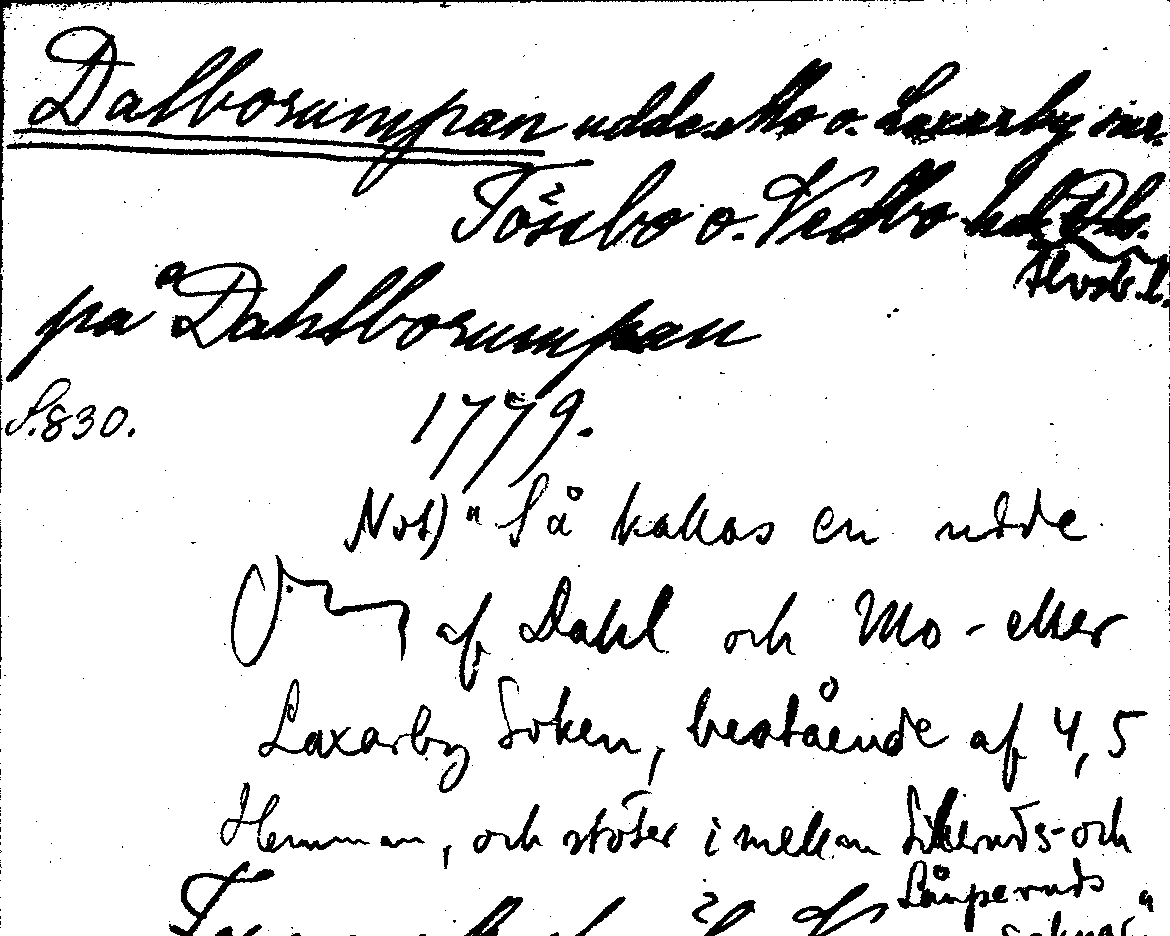 Dalborumpan udde. Mo o. Laxarby snr.
Tössbo o. Vedbo hd. Dls.
Älvsb. l.
på Dahlborumpan
S. 830.
1779.
Not) "Så kallas en udde
af Dahl och Mo- eller
Laxarby Soken, bestående af 4, 5
Hemman, och stöter i mellan Silleruds- och
Långseruds
soknar"